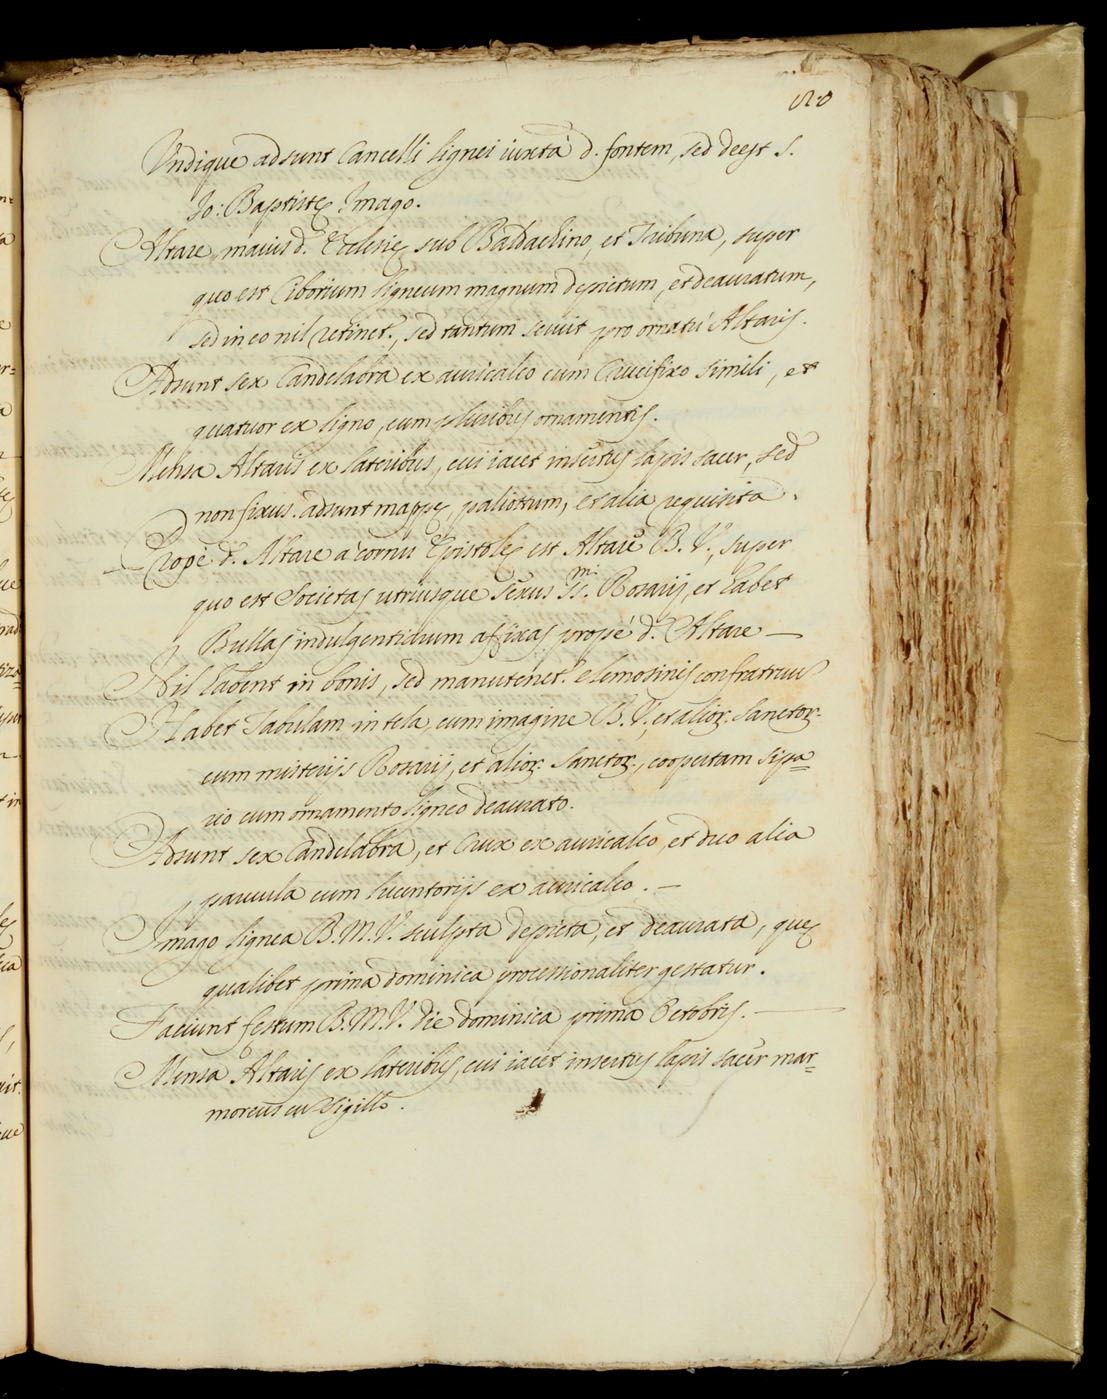 Undique adsunt Cancelli lignei iuxtà d. fontem, sed deest S.
Io: Baptistę Imago.
Altare maius d.ę Ecclesię sub Baldachino, et Tribuna, super
quo est Ciborium ligneum magnum depictum, et deauratum,
sed in eo nil retinet.r, sed tantum servit pro ornatu Altaris.
Adsunt sex Candelabra ex auricalco cum Crucifixo simili, et
quatuor ex ligno, cum pluribus ornamentis.
Mensa Altaris ex lateribus, cui iacet insertus lapis sacer, sed
non fixus. adsunt mappę, paliottum, et alia requisita.
Propè d.m Altare à cornu Epistolę est Altare B. V., super
quo est Societas utriusque sexus SS.mi Rosarij, et habet
Bullas indulgentiarum affixas propè d.m Altare —
Nil habent in bonis, sed manutenet.r elemosinis confratrum
Habet Tabulam in tela, cum imagine B. V., et alior. Sanctor.
cum misterijs Rosarij, et alior. Sanctor., coopertam sipa=
rio cum ornamento ligneo deaurato.
Adsunt sex Candelabra, et Crux ex auricalco, et duo alia
parvula cum lucentorijs ex auricalco. —
Imago lignea B. M. V. sculpta depicta, et deaurata, quę
qualibet prima dominica processionaliter gestatur.
Faciunt festum B. M. V. die dominica prima Octobris. —
Mensa Altaris ex lateribus, cui iacet insertus lapis sacer mar=
moreus cu sigillo.